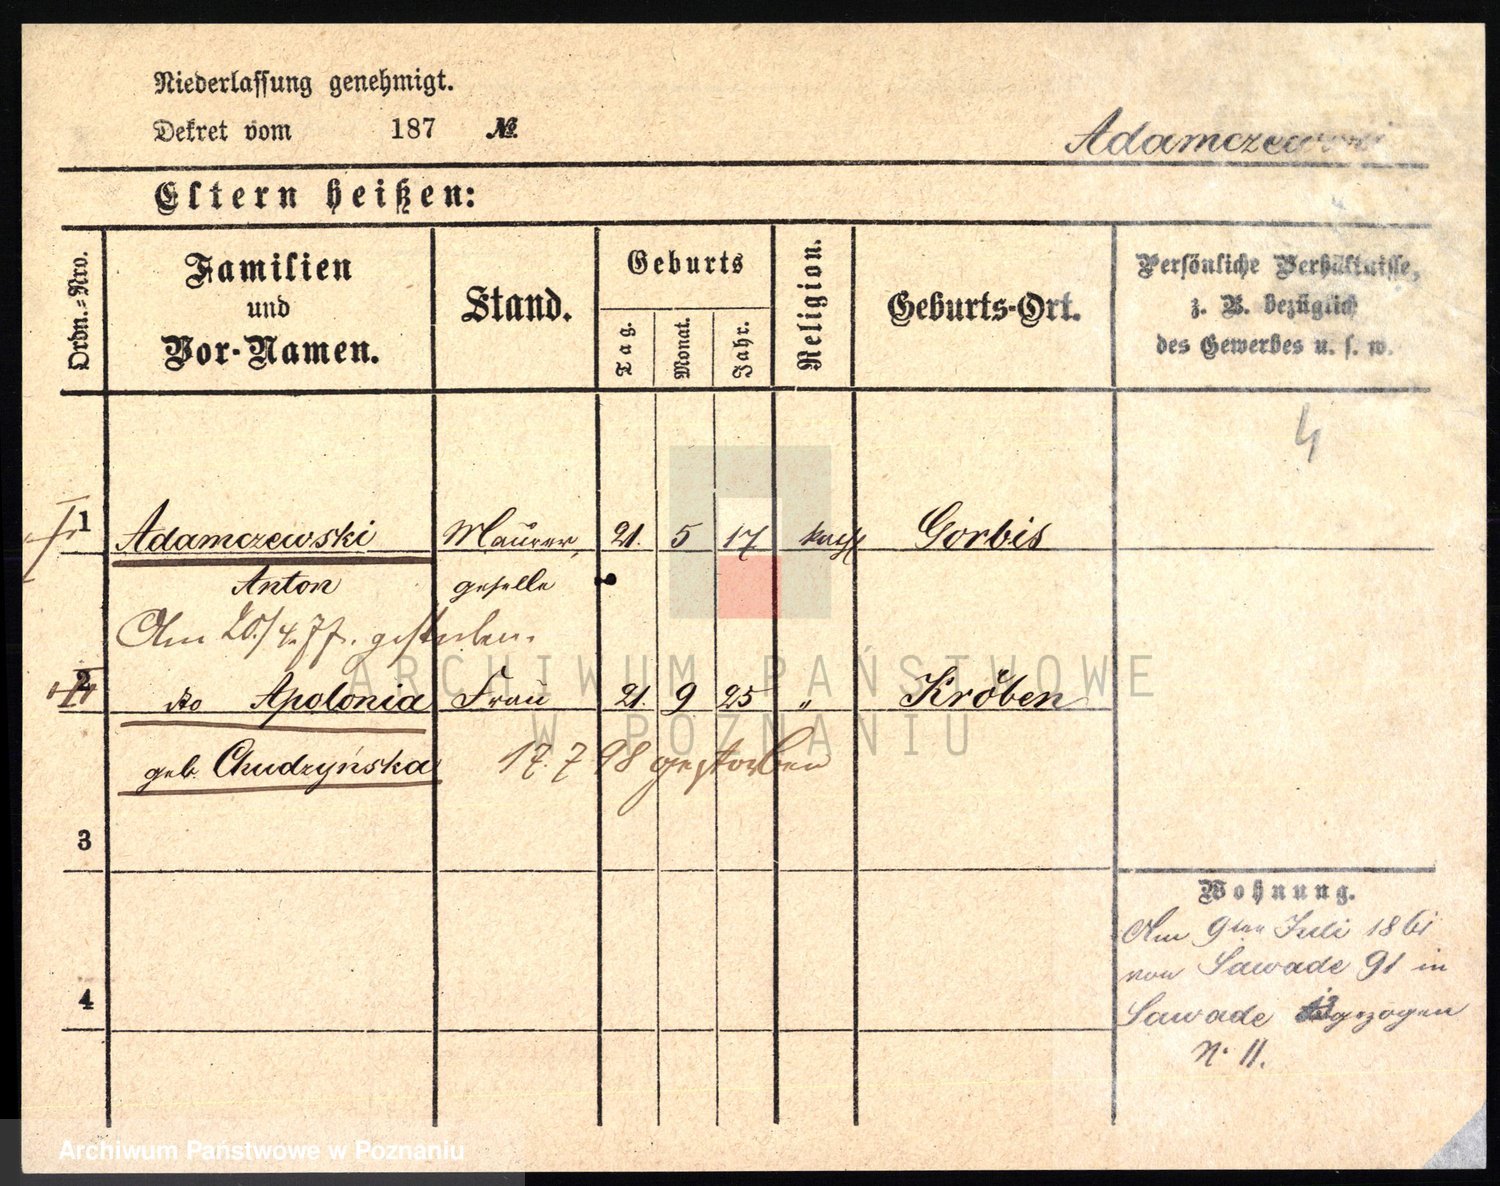 Niederlassung genehmigt.
Dekret vom 187 №
Adamczewski
Eltern heißen:
Ordn.-Nro.
Familien
und
Vor-Namen.
Stand.
Geburts
Tag.
Monat.
Jahr.
Religion.
Geburts-Ort.
Persönliche Verhältnisse,
z. B. bezüglich
des Gewerbes u. s. w.
4
1 Adamczewski Maurer, 21. 5 17 kath Gorbis
Anton geselle
Am 20./4. 77. gestorben.
2 do Apolonia Frau 21. 9 25 „ Kröben
geb. Chudzyńska 17. 7 98 gestorben
3
4
Wohnung.
Am 9ten Juli 1861
von Sawade 91 in
Sawade gezogen
N. 11.
ARCHIWUM PAŃSTWOWE
W POZNANIU
Archiwum Państwowe w Poznaniu